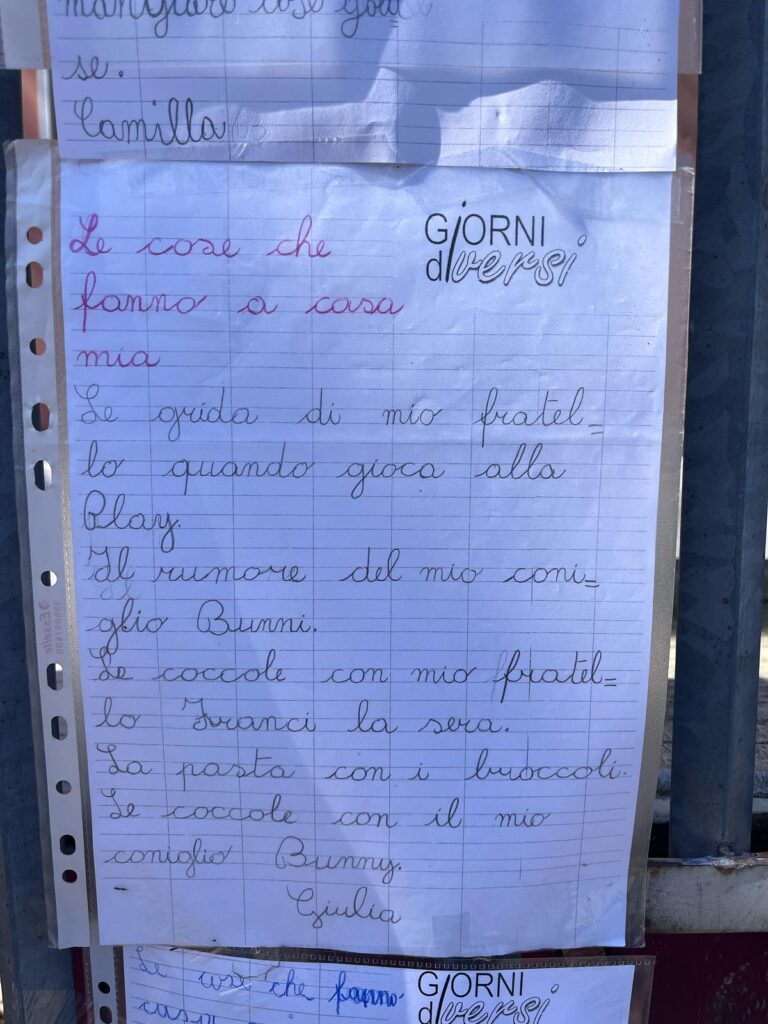 mangiare cose golo
se.
Camilla
GiORNI
diversi
Le cose che
fanno a casa
mia
Le grida di mio fratel=
lo quando gioca alla
Play.
Il rumore del mio coni=
glio Bunni.
Le coccole con mio fratel=
lo Franci la sera.
La pasta con i broccoli.
Le coccole con il mio
coniglio Bunny.
Giulia
Esselte
Le cose che fanno
GiORNI
diversi